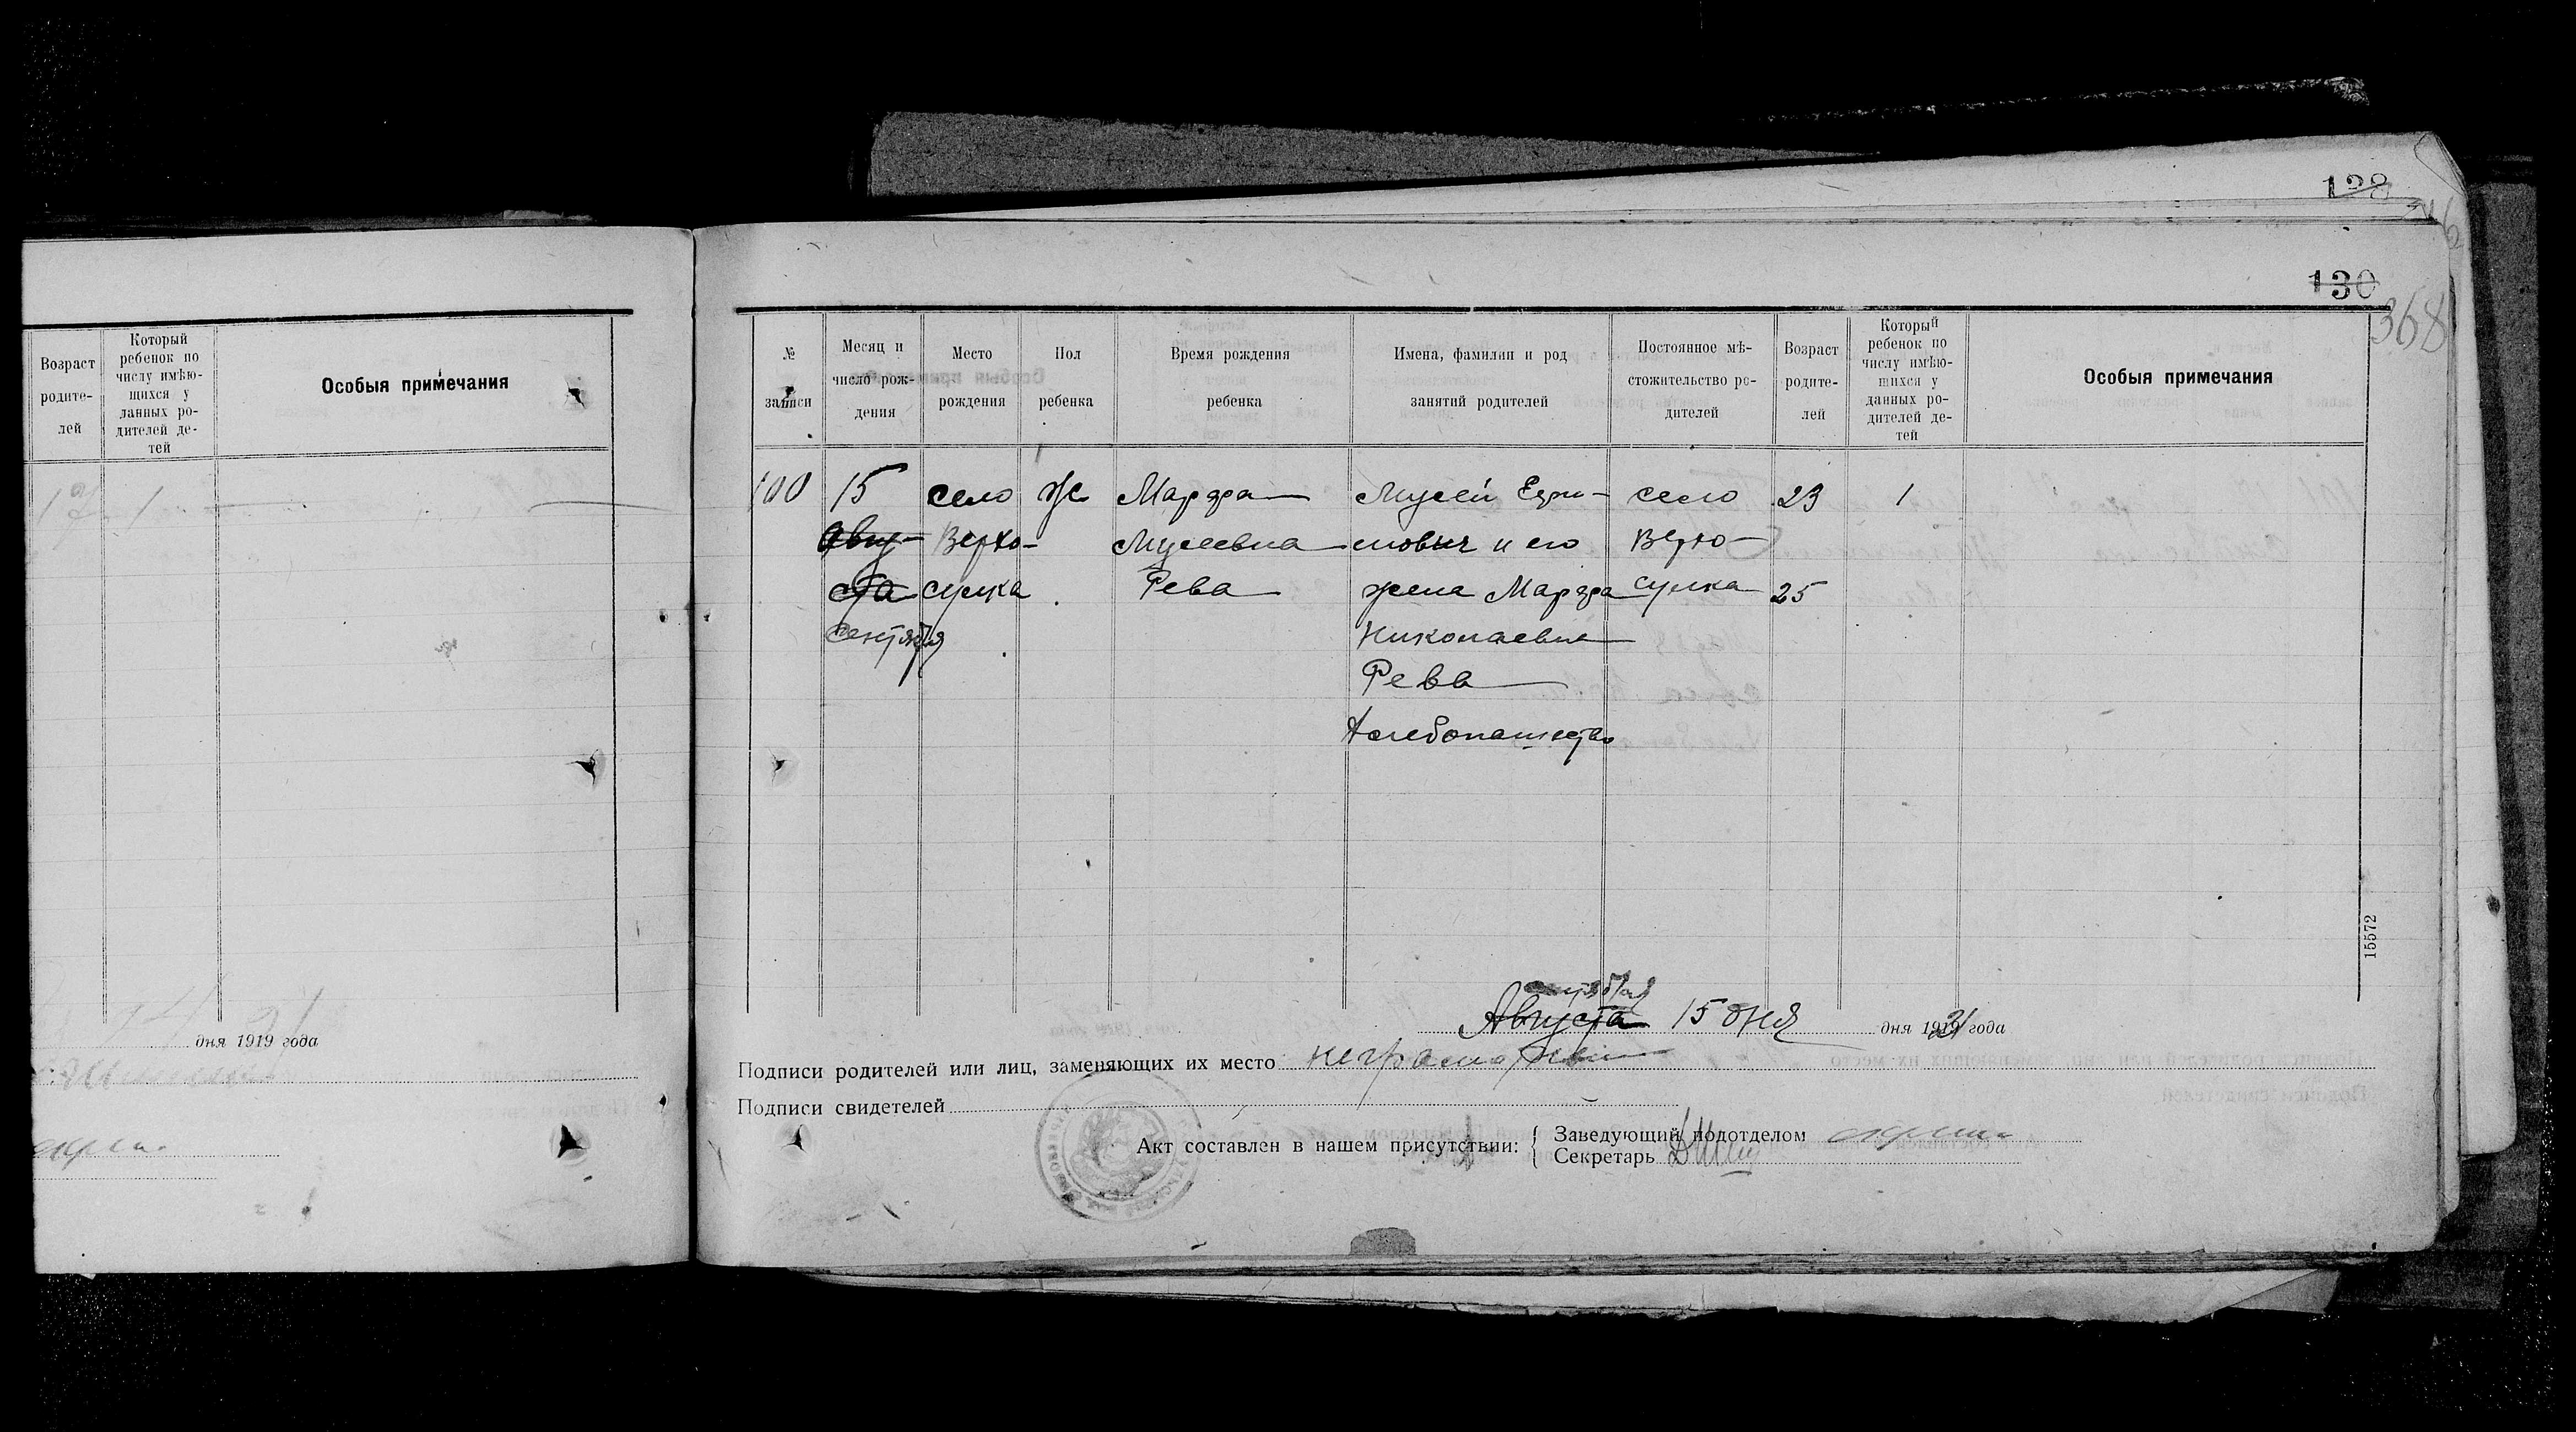 128
130
368
Возраст родите-лей
Который ребенок по числу имѣю-щихся у данных ро-дителей де-тей
Особыя примечания
1
дня 1919 года
№ записи
Месяц и число рож-дения
Место рождения
Пол ребенка
Время рождения ребенка
Имена, фамилии и род занятий родителей
Постоянное мѣ-стожительство ро-дителей
Возраст родите-лей
Который ребенок по числу имѣю-щихся у данных ро-дителей де-тей
Особыя примечания
100 15 село Ж Марфа Мусей село 23 1
Авгу- Верхо- Мусеевна мович и его Верхо-
ста сулка Рева жена Марфа сулка 25
сентября Николаевна
Рева
Хлебопашество
15572
сентября
Августа 15 дня дня 1921 года
Подписи родителей или лиц, заменяющих их место неграмотны
Подписи свидетелей
Акт составлен в нашем присутствии:
Заведующий подотделом
Секретарь